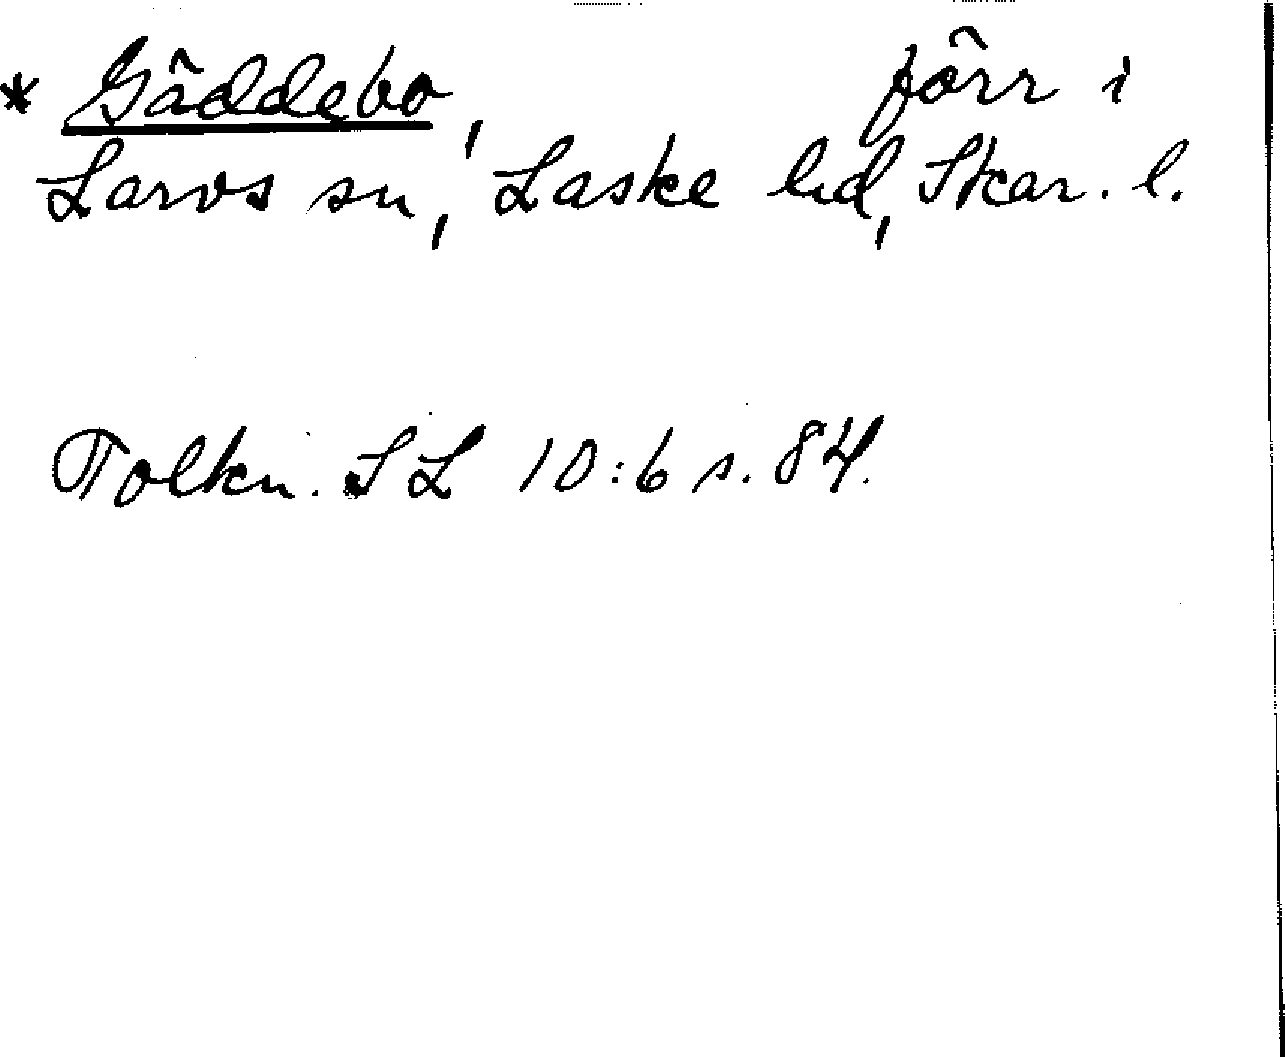 * Gäddebo, förr i
Larvs sn, Laske hd, Skar. l.
Tolkn. SL 10:6 s. 84.